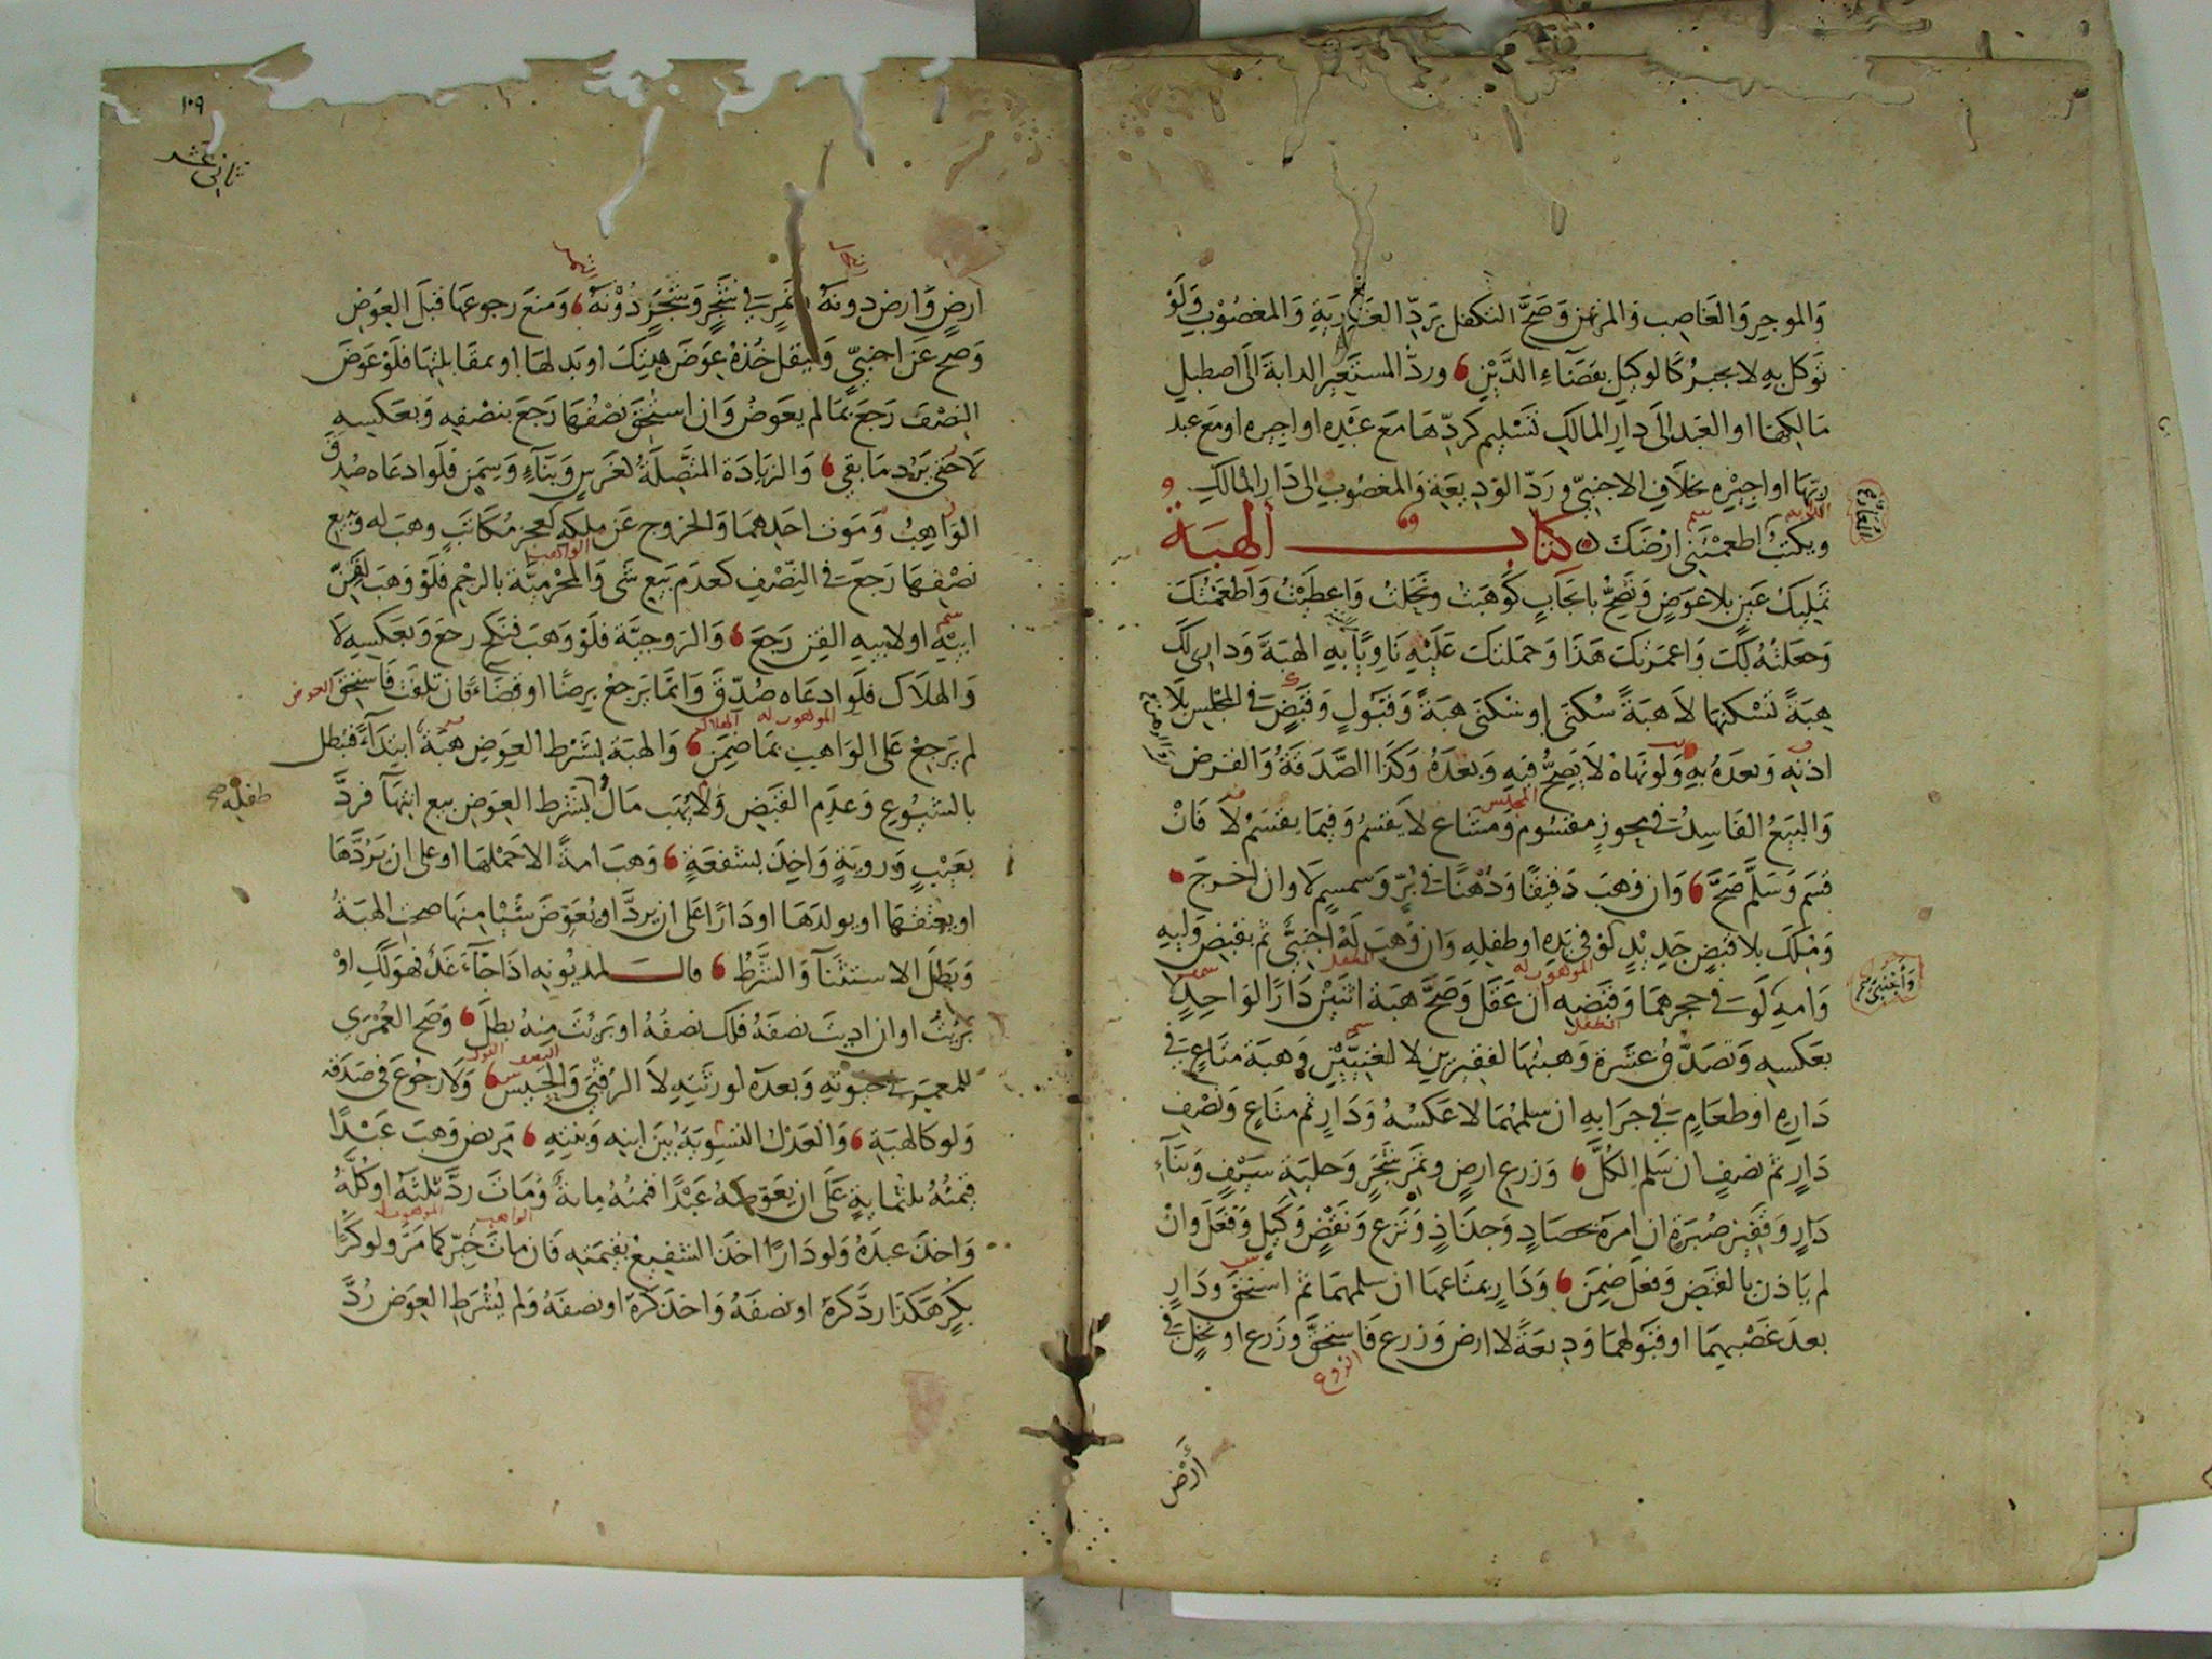 والموجر والغاصب والمرتهن وصح التكفل برد العارية والمغصوب ولو
توكل به لا يجبر كالوكيل بقضاء الدين ورد المستعير الدابة الى اصطبل
مالكها او العبد الى دار المالك تسليم كردها مع عبده او اجيره او مع عبد
ربها او اجيره بخلاف الاجنبي ورد الوديعة والمغصوب الى دار المالك
ويكتب اطعمتني ارضك كتاب الهبة
تمليك عين بلا عوض وتصح بايجاب كوهبت ونحلت واعطيت واطعمتك
وجعلته لك واعمرتك هذا وحملتك عليه ناويا به الهبة وداري لك
هبة تسكنها لا هبة سكنى او سكنى هبة وقبول وقبض في المجلس بلا
اذنه وبعده به ولو نهاه لا يصح فيه وبعده وكذا الصدقة والقرض
والبيع الفاسد في محوز مقسوم ومشاع لا يقسم وفيما يقسم لا فان
قسم وسلم صح وان وهب دقيقا ودهنا في بر وسمسم لا وان اخرج
وملك بلا قبض جديد لو في يده او طفله وان وهب له اجنبي ثم بقبض وليه
وامه لو في حجرهما وقبضه ان عقل وصح هبة اثنين دارا لواحد لا
بعكسه وتصدق عشرة وهبتها لفقيرين لا لغنيين وهبة متاع في
داره او طعام في جرابه ان سلمهما لا عكسه ودار ثم متاع ونصف
دار ثم نصف ان سلم الكل وزرع ارض وثمر شجر وحلية سيف وبناء
دار وقفيز صبرة ان امره بحصاد وجذاذ ونزع ونقض وكيل وفعل وان
لم ياذن بالقبض وفعل ضمن ودار بمتاعها ان سلمهما ثم استحق ودار
بعد غصبهما او قبولهما وديعة لا ارض وزرع فاستحق وزرع او نخل في
الزرع
المجلس
الموهوب له
الطفل
وأجنبي
أرض
١٠٩
ثاني عشر
ارض وارض دونه وثمر في شجر وشجر دونه ومنع رجوعها قبل العوض
وصح عن اجنبي وليقل خذه عوض هبتك او بدلها او بمقابلتها فلو عوض
النصف رجع بما لم يعوض وان استحق نصفها رجع بنصفه وبعكسه
لا حتى يرد ما بقي والزيادة المتصلة لغرس وبناء وسمن فلو ادعاه صدق
الواهب وموت احدهما والخروج عن ملكه كعجز مكاتب وهب له وبيع
نصفها رجع في النصف كعدم بيع شي والمحرمية بالرحم فلو وهب لقن
ابيه او لابيه القن رجع والزوجية فلو وهب فنكح رجع وبعكسه لا
والهلاك فلو ادعاه صدق وانما يرجع برضا او قضاء فان تلفت فاستحق
العوض
لم يرجع على الواهب بما ضمن والهبة بشرط العوض هبة ابتداء فبطل
الموهوب له
بالشيوع وعدم القبض ولا يهب مال
طفله صح
بشرط العوض بيع انتهاء فرد
بعيب وروية واخذ بشفعة وهب امة الا حملها او على ان يردها
او يعتقها او يولدها او دارا على ان يرد او يعوض شيئا منها صحت الهبة
وبطل الاستثنا والشرط قال لمديونه اذا جاء غد فهو لك او
برئت او ان اديت نصفه فلك نصفه او برئت منه بطل وصح العمرى
للمعمر في حيوته وبعده لورثته لا الرقبى والحبيس ولا رجوع في صدقة
ولو كالهبة والعدل التسوية بين ابنه وبنته مريض وهب عبدا
قيمته ثلثماية على ان يعوضه عبدا قيمته ماية ومات رد ثلثه او كله
واخذ عبده ولو دارا اخذ الشفيع بقيمته فان مات خير كما مر ولو كرا
الواهب
الموهوب له
بكر هكذا رد كره او نصفه واخذ كره او نصفه ولم يشرط العوض رد